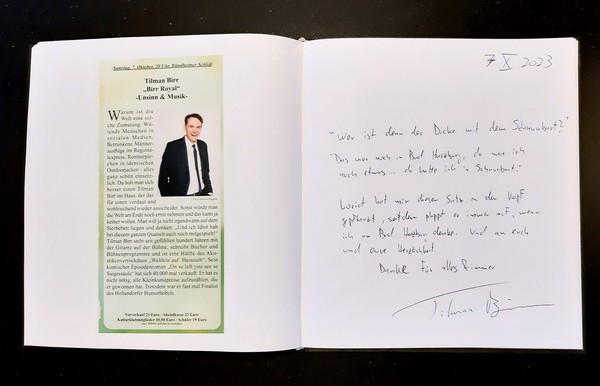 Samstag, 7. Oktober, 20 Uhr, Bündheimer Schloß
Tilman Birr
„Birr Royal“
-Unsinn & Musik-
Warum ist die
Welt eine sol-
che Zumutung: Wü-
tende Menschen in
sozialen Medien.
Betrunkene Männer-
ausflüge im Regional-
express. Rentnerpär-
chen in identischen
Outdoorjacken - alles
ganz schön entsetz-
lich. Da holt man sich
besser einen Tilman
Birr ins Haus, der das
für einen verdaut und
wohltuend wieder ausscheidet. Sonst würde man
die Welt am Ende noch ernst nehmen und das kann ja
keiner wollen. Man will ja nicht irgendwann auf dem
Sterbebett liegen und denken: „Und ich Idiot hab
bei diesem ganzen Quatsch auch noch mitgespielt!“
Tilman Birr steht seit gefühlten hundert Jahren mit
der Gitarre auf der Bühne, schreibt Bücher und
Bühnenprogramme und ist eine Hälfte des Aku-
stikverrockduos „Welthits auf Hessisch“. Sein
komischer Episodenroman „On se left you see se
Siegessäule“ hat sich 40.000 mal verkauft. Er hat es
nicht nötig, alle Kleinkunstpreise aufzuzählen, die
er gewonnen hat. Trotzdem war er fast mal Finalist
des Hollendorfer Humorhobels.
Vorverkauf 21 Euro / Abendkasse 23 Euro
Kulturklubmitglieder 18,50 Euro / Schüler 19 Euro
7 X 2023
"Wer ist denn der Dicke mit dem Schnurrbart?"
"Das war noch in Bad Harzburg, da war ich
noch etwas... da hatte ich 'n Schnurrbart."
Loriot hat mir diesen Satz in den Kopf
gepflanzt, seitdem ploppt er immer auf, wenn
ich an Bad Harzburg denke. Und an euch
und eure Herzlichkeit.
Danke für alles & immer
Tilman Birr